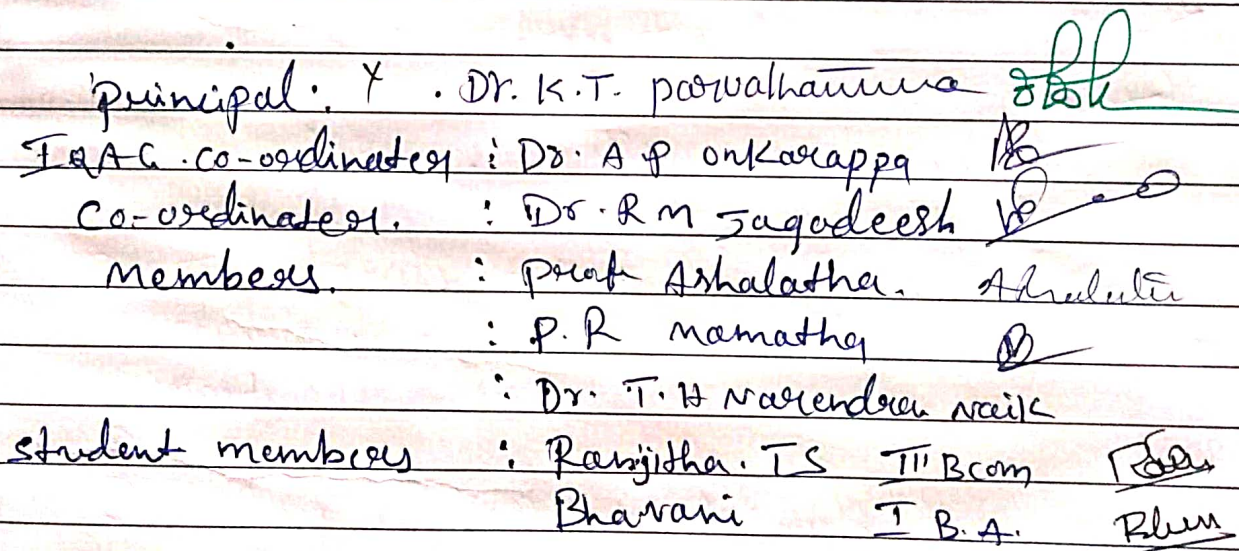 Principal : Y . Dr. K.T. parvathamma
IQAC . co-ordinater : Dr. A P onkarappa
Co-ordinater. : Dr. R M Jagadeesh
Members. : Prof Ashalatha. Ashalatha
: P.R mamatha
: Dr. T. H Narendra naik
student members : Ranjitha. T S III Bcom
Bhavani I B.A.